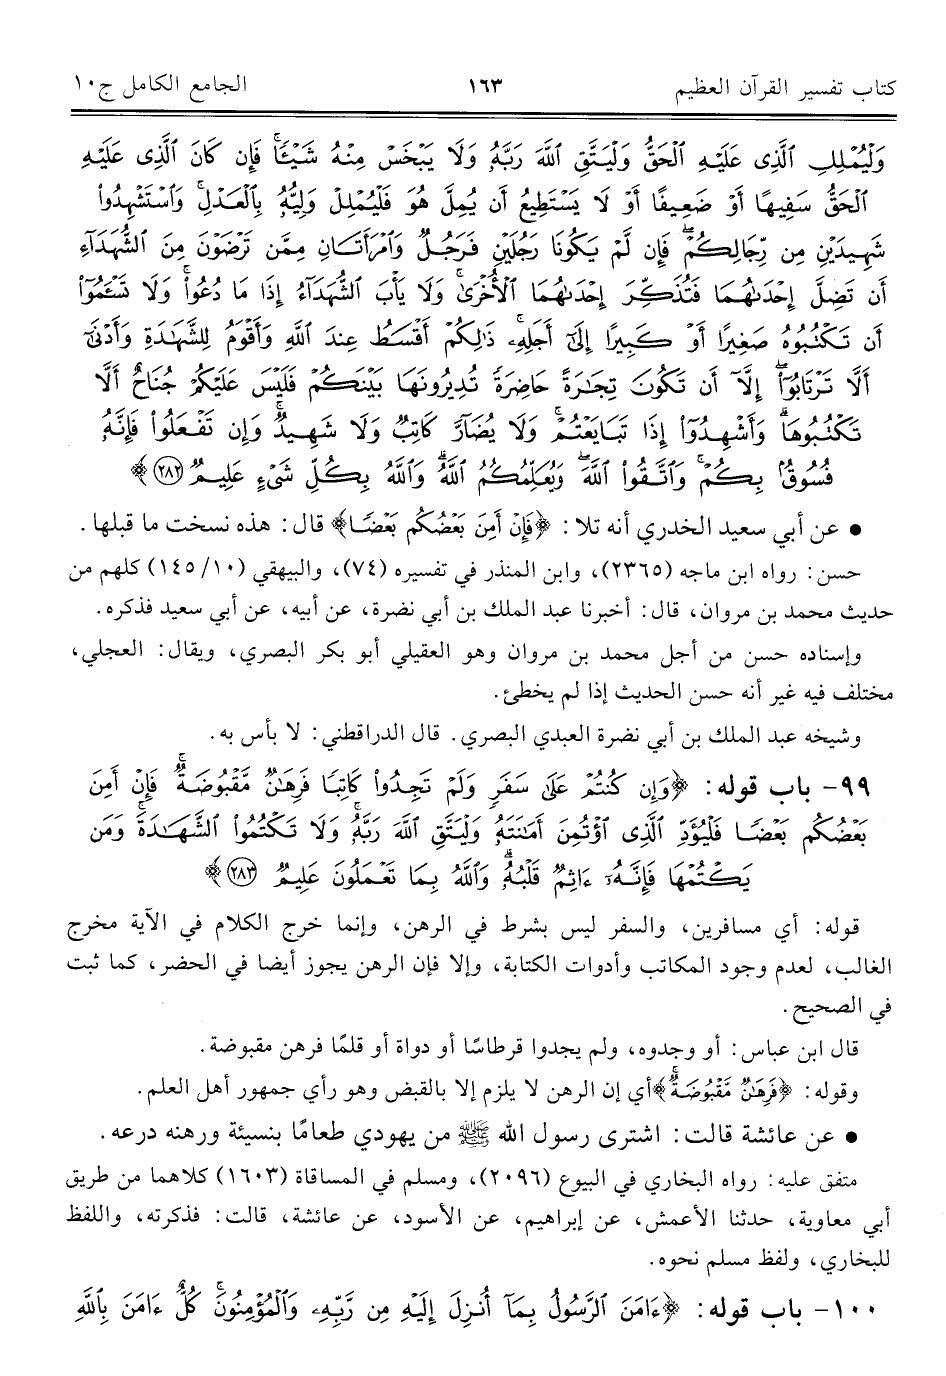 كتاب تفسير القرآن العظيم ١٦٣ الجامع الكامل ج١٠
وَلْيُمْلِلِ ٱلَّذِى عَلَيْهِ ٱلْحَقُّ وَلْيَتَّقِ ٱللَّهَ رَبَّهُۥ وَلَا يَبْخَسْ مِنْهُ شَيْـًٔا ۚ فَإِن كَانَ ٱلَّذِى عَلَيْهِ
ٱلْحَقُّ سَفِيهًا أَوْ ضَعِيفًا أَوْ لَا يَسْتَطِيعُ أَن يُمِلَّ هُوَ فَلْيُمْلِلْ وَلِيُّهُۥ بِٱلْعَدْلِ ۚ وَٱسْتَشْهِدُوا۟
شَهِيدَيْنِ مِن رِّجَالِكُمْ ۖ فَإِن لَّمْ يَكُونَا رَجُلَيْنِ فَرَجُلٌ وَٱمْرَأَتَانِ مِمَّن تَرْضَوْنَ مِنَ ٱلشُّهَدَآءِ
أَن تَضِلَّ إِحْدَىٰهُمَا فَتُذَكِّرَ إِحْدَىٰهُمَا ٱلْأُخْرَىٰ ۚ وَلَا يَأْبَ ٱلشُّهَدَآءُ إِذَا مَا دُعُوا۟ ۚ وَلَا تَسْـَٔمُوٓا۟
أَن تَكْتُبُوهُ صَغِيرًا أَوْ كَبِيرًا إِلَىٰٓ أَجَلِهِۦ ۚ ذَٰلِكُمْ أَقْسَطُ عِندَ ٱللَّهِ وَأَقْوَمُ لِلشَّهَٰدَةِ وَأَدْنَىٰٓ
أَلَّا تَرْتَابُوٓا۟ ۖ إِلَّآ أَن تَكُونَ تِجَٰرَةً حَاضِرَةً تُدِيرُونَهَا بَيْنَكُمْ فَلَيْسَ عَلَيْكُمْ جُنَاحٌ أَلَّا
تَكْتُبُوهَا ۗ وَأَشْهِدُوٓا۟ إِذَا تَبَايَعْتُمْ ۚ وَلَا يُضَآرَّ كَاتِبٌ وَلَا شَهِيدٌ ۚ وَإِن تَفْعَلُوا۟ فَإِنَّهُۥ
فُسُوقٌۢ بِكُمْ ۗ وَٱتَّقُوا۟ ٱللَّهَ ۖ وَيُعَلِّمُكُمُ ٱللَّهُ ۗ وَٱللَّهُ بِكُلِّ شَىْءٍ عَلِيمٌ ﴿٢٨٢﴾ ﴾
• عن أبي سعيد الخدري أنه تلا: ﴿فَإِنْ أَمِنَ بَعْضُكُم بَعْضًا﴾ قال: هذه نسخت ما قبلها.
حسن: رواه ابن ماجه (٢٣٦٥)، وابن المنذر في تفسيره (٧٤)، والبيهقي (١٤٥/١٠) كلهم من
حديث محمد بن مروان، قال: أخبرنا عبد الملك بن أبي نضرة، عن أبيه، عن أبي سعيد فذكره.
وإسناده حسن من أجل محمد بن مروان وهو العقيلي أبو بكر البصري، ويقال: العجلي،
مختلف فيه غير أنه حسن الحديث إذا لم يخطئ.
وشيخه عبد الملك بن أبي نضرة العبدي البصري. قال الدراقطني: لا بأس به.
٩٩- باب قوله: ﴿وَإِن كُنتُمْ عَلَىٰ سَفَرٍ وَلَمْ تَجِدُوا۟ كَاتِبًا فَرِهَٰنٌ مَّقْبُوضَةٌ ۖ فَإِنْ أَمِنَ
بَعْضُكُم بَعْضًا فَلْيُؤَدِّ ٱلَّذِى ٱؤْتُمِنَ أَمَٰنَتَهُۥ وَلْيَتَّقِ ٱللَّهَ رَبَّهُۥ ۗ وَلَا تَكْتُمُوا۟ ٱلشَّهَٰدَةَ ۚ وَمَن
يَكْتُمْهَا فَإِنَّهُۥٓ ءَاثِمٌ قَلْبُهُۥ ۗ وَٱللَّهُ بِمَا تَعْمَلُونَ عَلِيمٌ ﴿٢٨٣﴾ ﴾
قوله: أي مسافرين، والسفر ليس بشرط في الرهن، وإنما خرج الكلام في الآية مخرج
الغالب، لعدم وجود المكاتب وأدوات الكتابة، وإلا فإن الرهن يجوز أيضا في الحضر، كما ثبت
في الصحيح.
قال ابن عباس: أو وجدوه، ولم يجدوا قرطاسًا أو دواة أو قلمًا فرهن مقبوضة.
وقوله: ﴿فَرِهَٰنٌ مَّقْبُوضَةٌ﴾أي إن الرهن لا يلزم إلا بالقبض وهو رأي جمهور أهل العلم.
• عن عائشة قالت: اشترى رسول الله ﷺ من يهودي طعامًا بنسيئة ورهنه درعه.
متفق عليه: رواه البخاري في البيوع (٢٠٩٦)، ومسلم في المساقاة (١٦٠٣) كلاهما من طريق
أبي معاوية، حدثنا الأعمش، عن إبراهيم، عن الأسود، عن عائشة، قالت: فذكرته، واللفظ
للبخاري، ولفظ مسلم نحوه.
١٠٠- باب قوله: ﴿ءَامَنَ ٱلرَّسُولُ بِمَآ أُنزِلَ إِلَيْهِ مِن رَّبِّهِۦ وَٱلْمُؤْمِنُونَ ۚ كُلٌّ ءَامَنَ بِٱللَّهِ